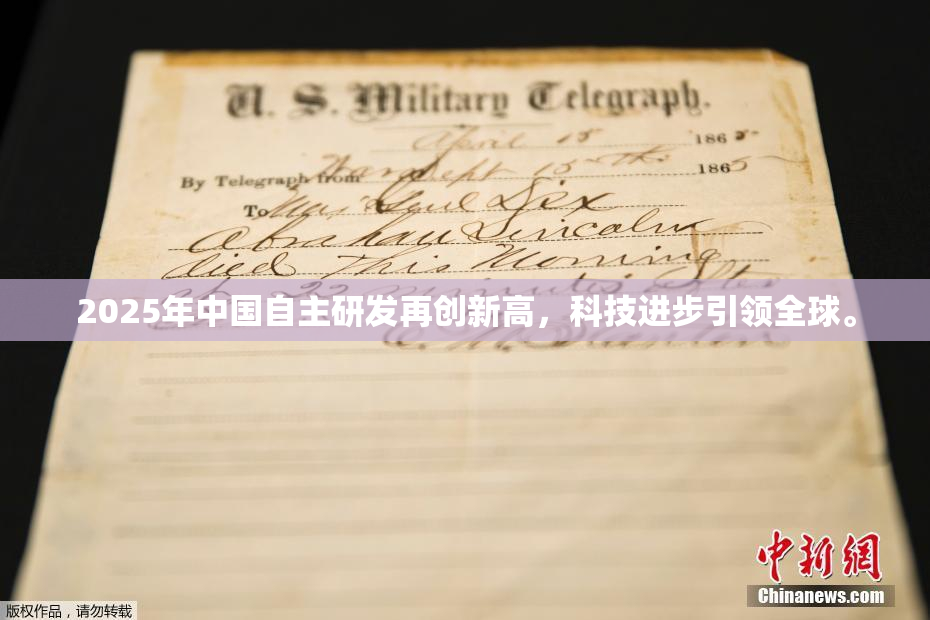 U. S. Military Telegraph.
April 15 1865
By Telegraph from War Dept 15th 1865
To Maj Genl Dix
Abraham Lincoln
died This Morning
at 22 minutes after
2025年中国自主研发再创新高，科技进步引领全球。
Stanton
中新网
Chinanews.com
版权作品，请勿转载